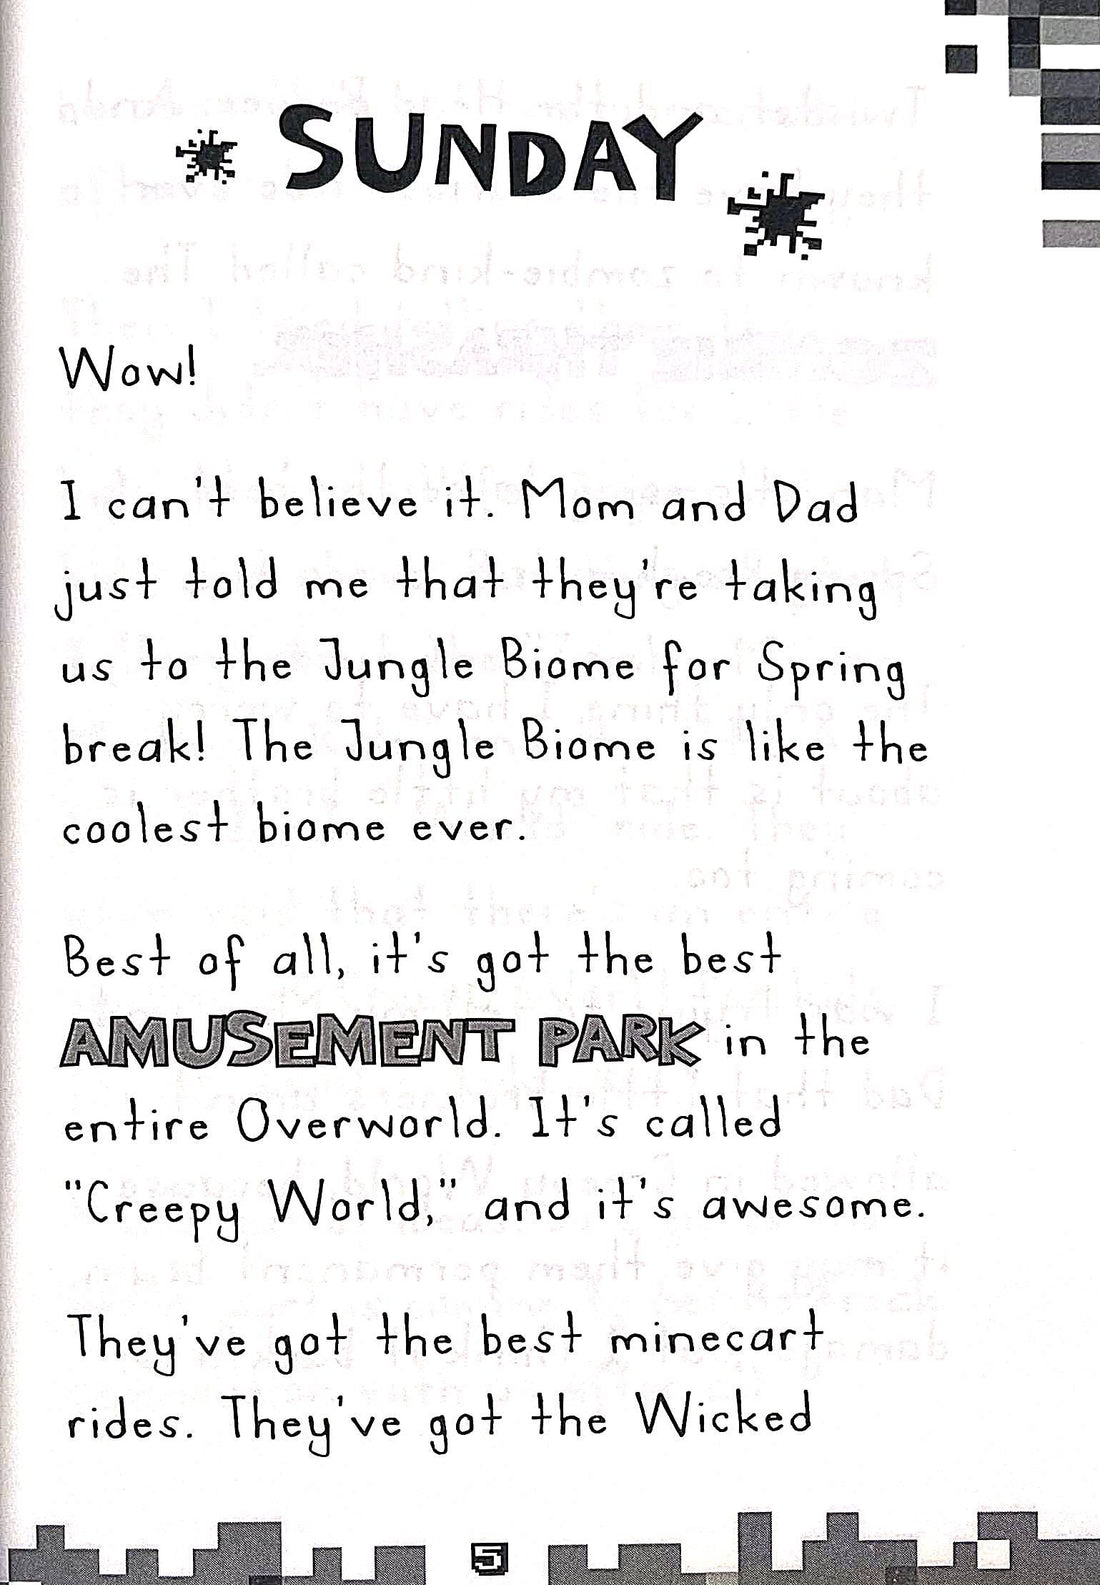 SUNDAY
Wow!
I can't believe it. Mom and Dad
just told me that they're taking
us to the Jungle Biome for Spring
break! The Jungle Biome is like the
coolest biome ever.
Best of all, it's got the best
AMUSEMENT PARK in the
entire Overworld. It's called
"Creepy World," and it's awesome.
They've got the best minecart
rides. They've got the Wicked
5